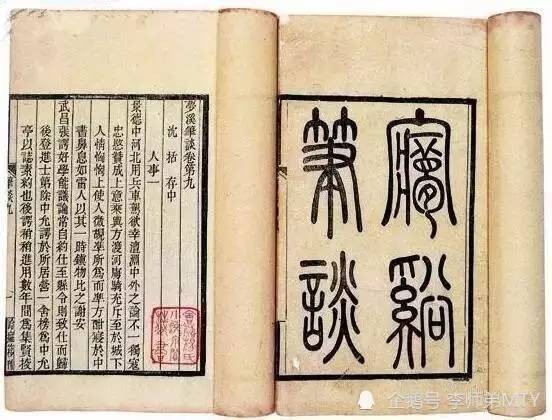 夢谿
筆談
夢溪筆談卷第九
沈括存中
人事一
景德中河北用兵車駕欲幸澶淵中外之論不一獨寇
忠愍贊成上意乘輿方渡河虜騎充斥至於城下
人情恟恟上使人微覘準所爲而準方酣寢於中
書鼻息如雷人以其一時鎮物比之謝安
武昌張諤好學能議論常自約仕至縣令則致仕而歸
後登進士第除中允諤於所居營一舍榜爲中允
亭以誌素約也後諤稍稍進用數年間爲集賢校
筆談九
一
企鹅号 李师弟MTY